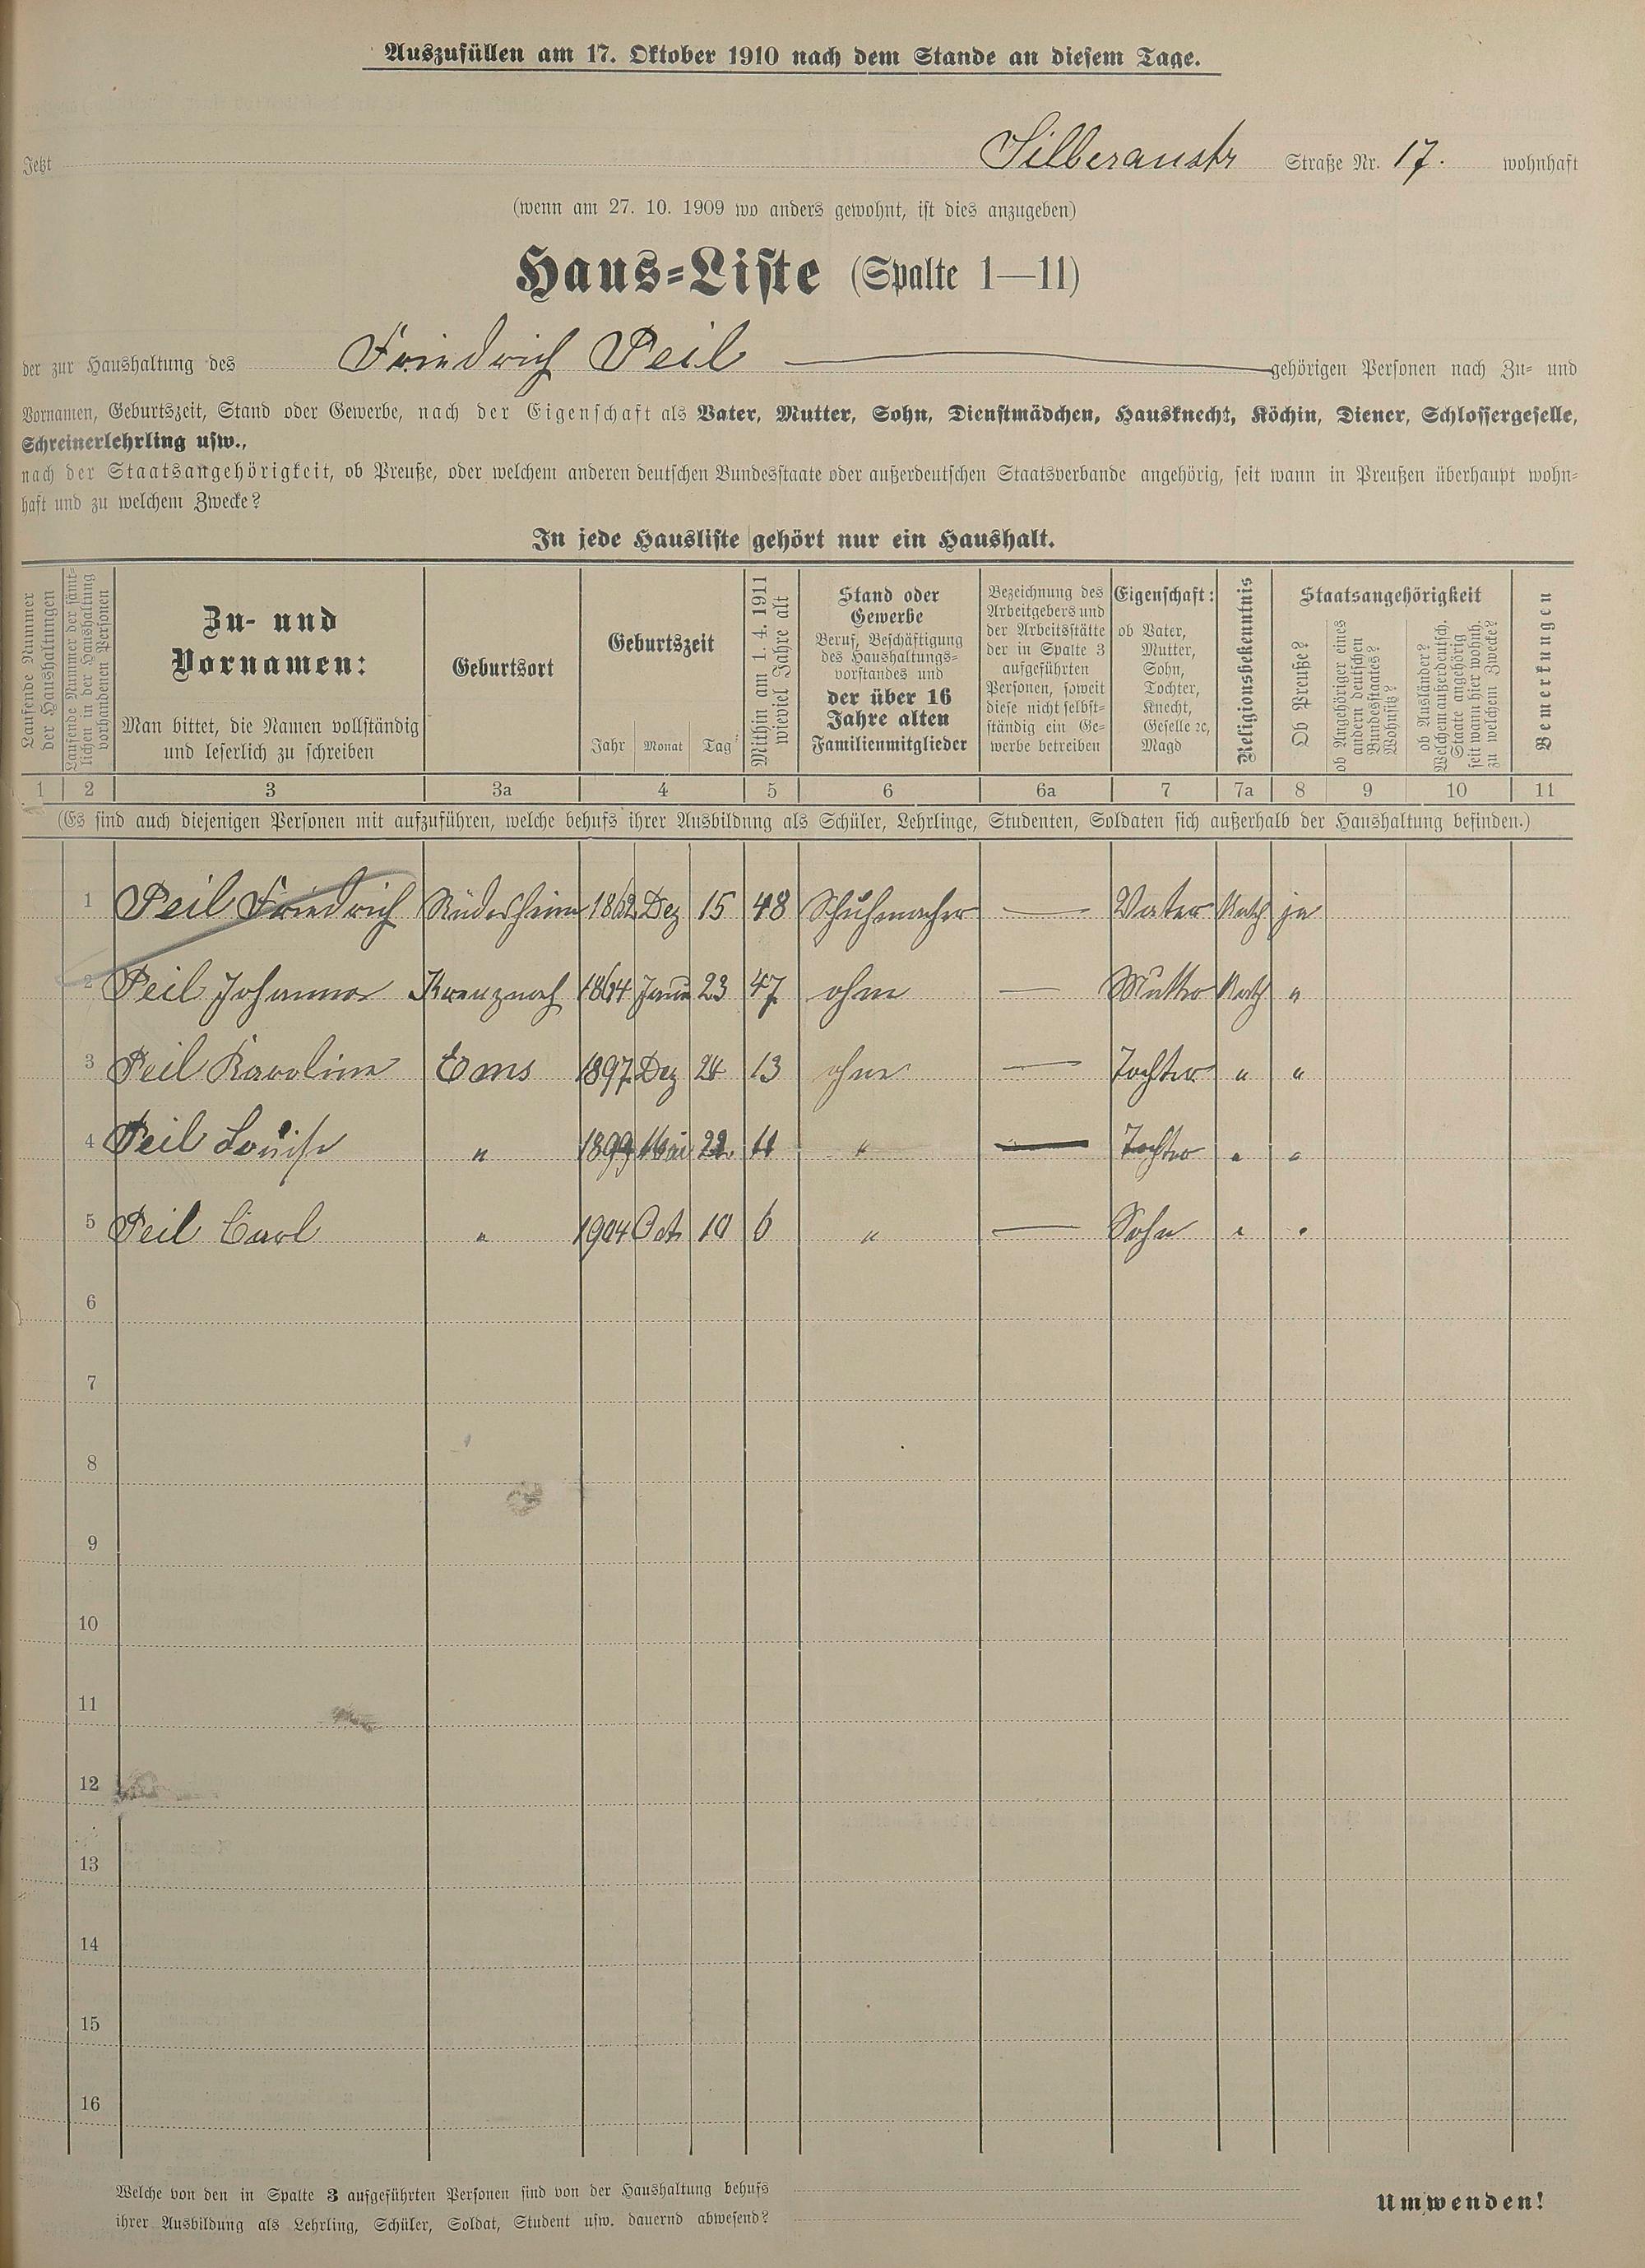 Auszufüllen am 17. Oktober 1910 nach dem Stande an diesem Tage.
Jetzt Silberaustr Straße Nr. 17. wohnhaft
(wenn am 27. 10. 1909 wo anders gewohnt, ist dies anzugeben)
Haus-Liste (Spalte 1—11)
der zur Haushaltung des Friedrich Peil gehörigen Personen nach Zu- und
Vornamen, Geburtszeit, Stand oder Gewerbe, nach der Eigenschaft als Vater, Mutter, Sohn, Dienstmädchen, Hausknecht, Köchin, Diener, Schlossergeselle,
Schreinerlehrling usw.,
nach der Staatsangehörigkeit, ob Preuße, oder welchem anderen deutschen Bundesstaate oder außerdeutschen Staatsverbande angehörig, seit wann in Preußen überhaupt wohn-
haft und zu welchem Zwecke?
In jede Hausliste gehört nur ein Haushalt.
Laufende Nummer
der Haushaltungen
Laufende Nummer der sämt-
lichen in der Haushaltung
vorhandenen Personen
Zu- und
Vornamen:
Man bittet, die Namen vollständig
und leserlich zu schreiben
Geburtsort
Geburtszeit
Jahr Monat Tag
Mithin am 1. 4. 1911
wieviel Jahre alt
Stand oder
Gewerbe
Beruf, Beschäftigung
des Haushaltungs-
vorstandes und
der über 16
Jahre alten
Familienmitglieder
Bezeichnung des
Arbeitgebers und
der Arbeitsstätte
der in Spalte 3
aufgeführten
Personen, soweit
diese nicht selbst-
ständig ein Ge-
werbe betreiben
Eigenschaft:
ob Vater,
Mutter,
Sohn,
Tochter,
Knecht,
Geselle ꝛc,
Magd
Religionsbekenntnis
Staatsangehörigkeit
Ob Preuße?
ob Angehöriger eines
andern deutschen
Bundesstaates?
Wohnsitz?
ob Ausländer?
Welchem außerdeutsch.
Staate angehörig
seit wann hier wohnh.
zu welchem Zwecke?
Bemerkungen
1 2 3 3a 4 5 6 6a 7 7a 8 9 10 11
(Es sind auch diejenigen Personen mit aufzuführen, welche behufs ihrer Ausbildung als Schüler, Lehrlinge, Studenten, Soldaten sich außerhalb der Haushaltung befinden.)
1 Peil Friedrich Rüdesheim 1862 Dez 15 48 Schuhmacher — Vater Kath ja
2 Peil Johanna Kreuznach 1864 Janu 23 47 ohne — Mutter Kath "
3 Peil Karoline Ems 1897 Dez 24 13 ohne — Tochter " "
4 Peil Louise " 1899 Mai 22 11 " — Tochter " "
5 Peil Carl " 1904 Oct 10 6 " — Sohn " "
6
7
8
9
10
11
12
13
14
15
16
Welche von den in Spalte 3 aufgeführten Personen sind von der Haushaltung behufs
ihrer Ausbildung als Lehrling, Schüler, Soldat, Student usw. dauernd abwesend?
Umwenden!